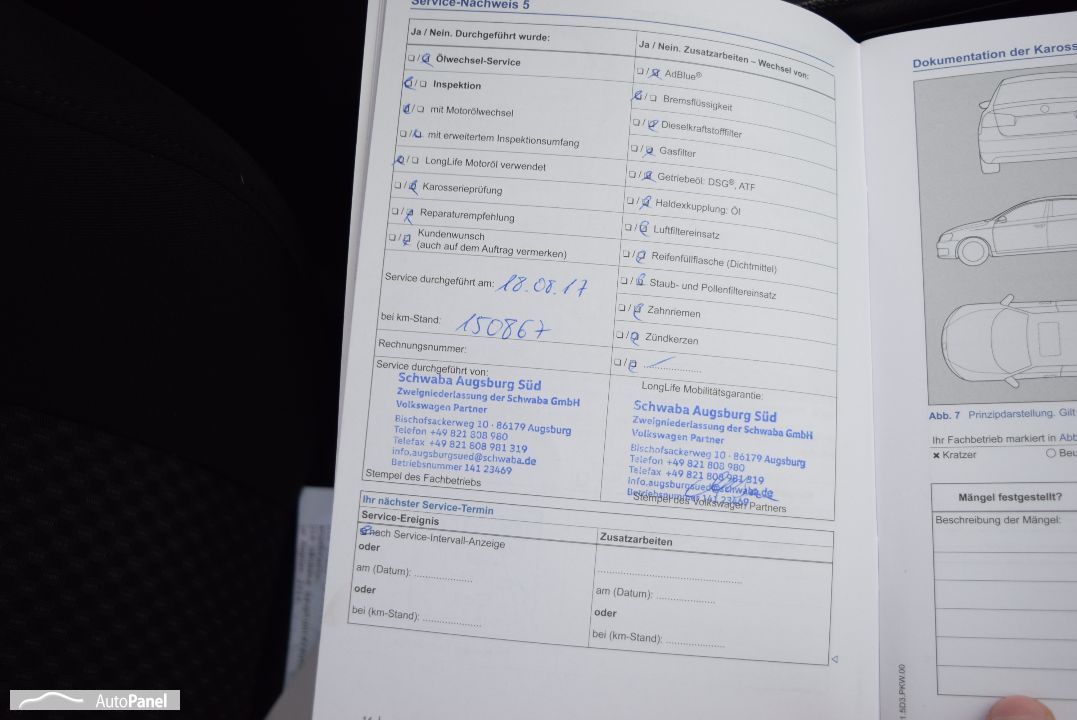 Service-Nachweis 5
Ja / Nein. Durchgeführt wurde:
Ölwechsel-Service
Inspektion
mit Motorölwechsel
mit erweitertem Inspektionsumfang
LongLife Motoröl verwendet
Karosserieprüfung
Reparaturempfehlung
Kundenwunsch
(auch auf dem Auftrag vermerken)
Service durchgeführt am: 18.08.17
bei km-Stand: 150867
Rechnungsnummer:
Service durchgeführt von:
Schwaba Augsburg Süd
Zweigniederlassung der Schwaba GmbH
Volkswagen Partner
Bischofsackerweg 10 · 86179 Augsburg
Telefon +49 821 808 980
Telefax +49 821 808 981 319
info.augsburgsued@schwaba.de
Betriebsnummer 141 23469
Stempel des Fachbetriebs
Ja / Nein. Zusatzarbeiten – Wechsel von:
AdBlue®
Bremsflüssigkeit
Dieselkraftstofffilter
Gasfilter
Getriebeöl: DSG®, ATF
Haldexkupplung: Öl
Luftfiltereinsatz
Reifenfüllflasche (Dichtmittel)
Staub- und Pollenfiltereinsatz
Zahnriemen
Zündkerzen
LongLife Mobilitätsgarantie:
Schwaba Augsburg Süd
Zweigniederlassung der Schwaba GmbH
Volkswagen Partner
Bischofsackerweg 10 · 86179 Augsburg
Telefon +49 821 808 980
Telefax +49 821 808 981 319
info.augsburgsued@schwaba.de
Betriebsnummer 141 23469
Stempel des Volkswagen Partners
Ihr nächster Service-Termin
Service-Ereignis
nach Service-Intervall-Anzeige
oder
am (Datum): ....................
oder
bei (km-Stand): ....................
Zusatzarbeiten
am (Datum): ....................
oder
bei (km-Stand): ....................
Dokumentation der Kaross
Abb. 7 Prinzipdarstellung. Gilt
Ihr Fachbetrieb markiert in Abb
Kratzer
Beu
Mängel festgestellt?
Beschreibung der Mängel:
1.5D3.PKW.00
AutoPanel